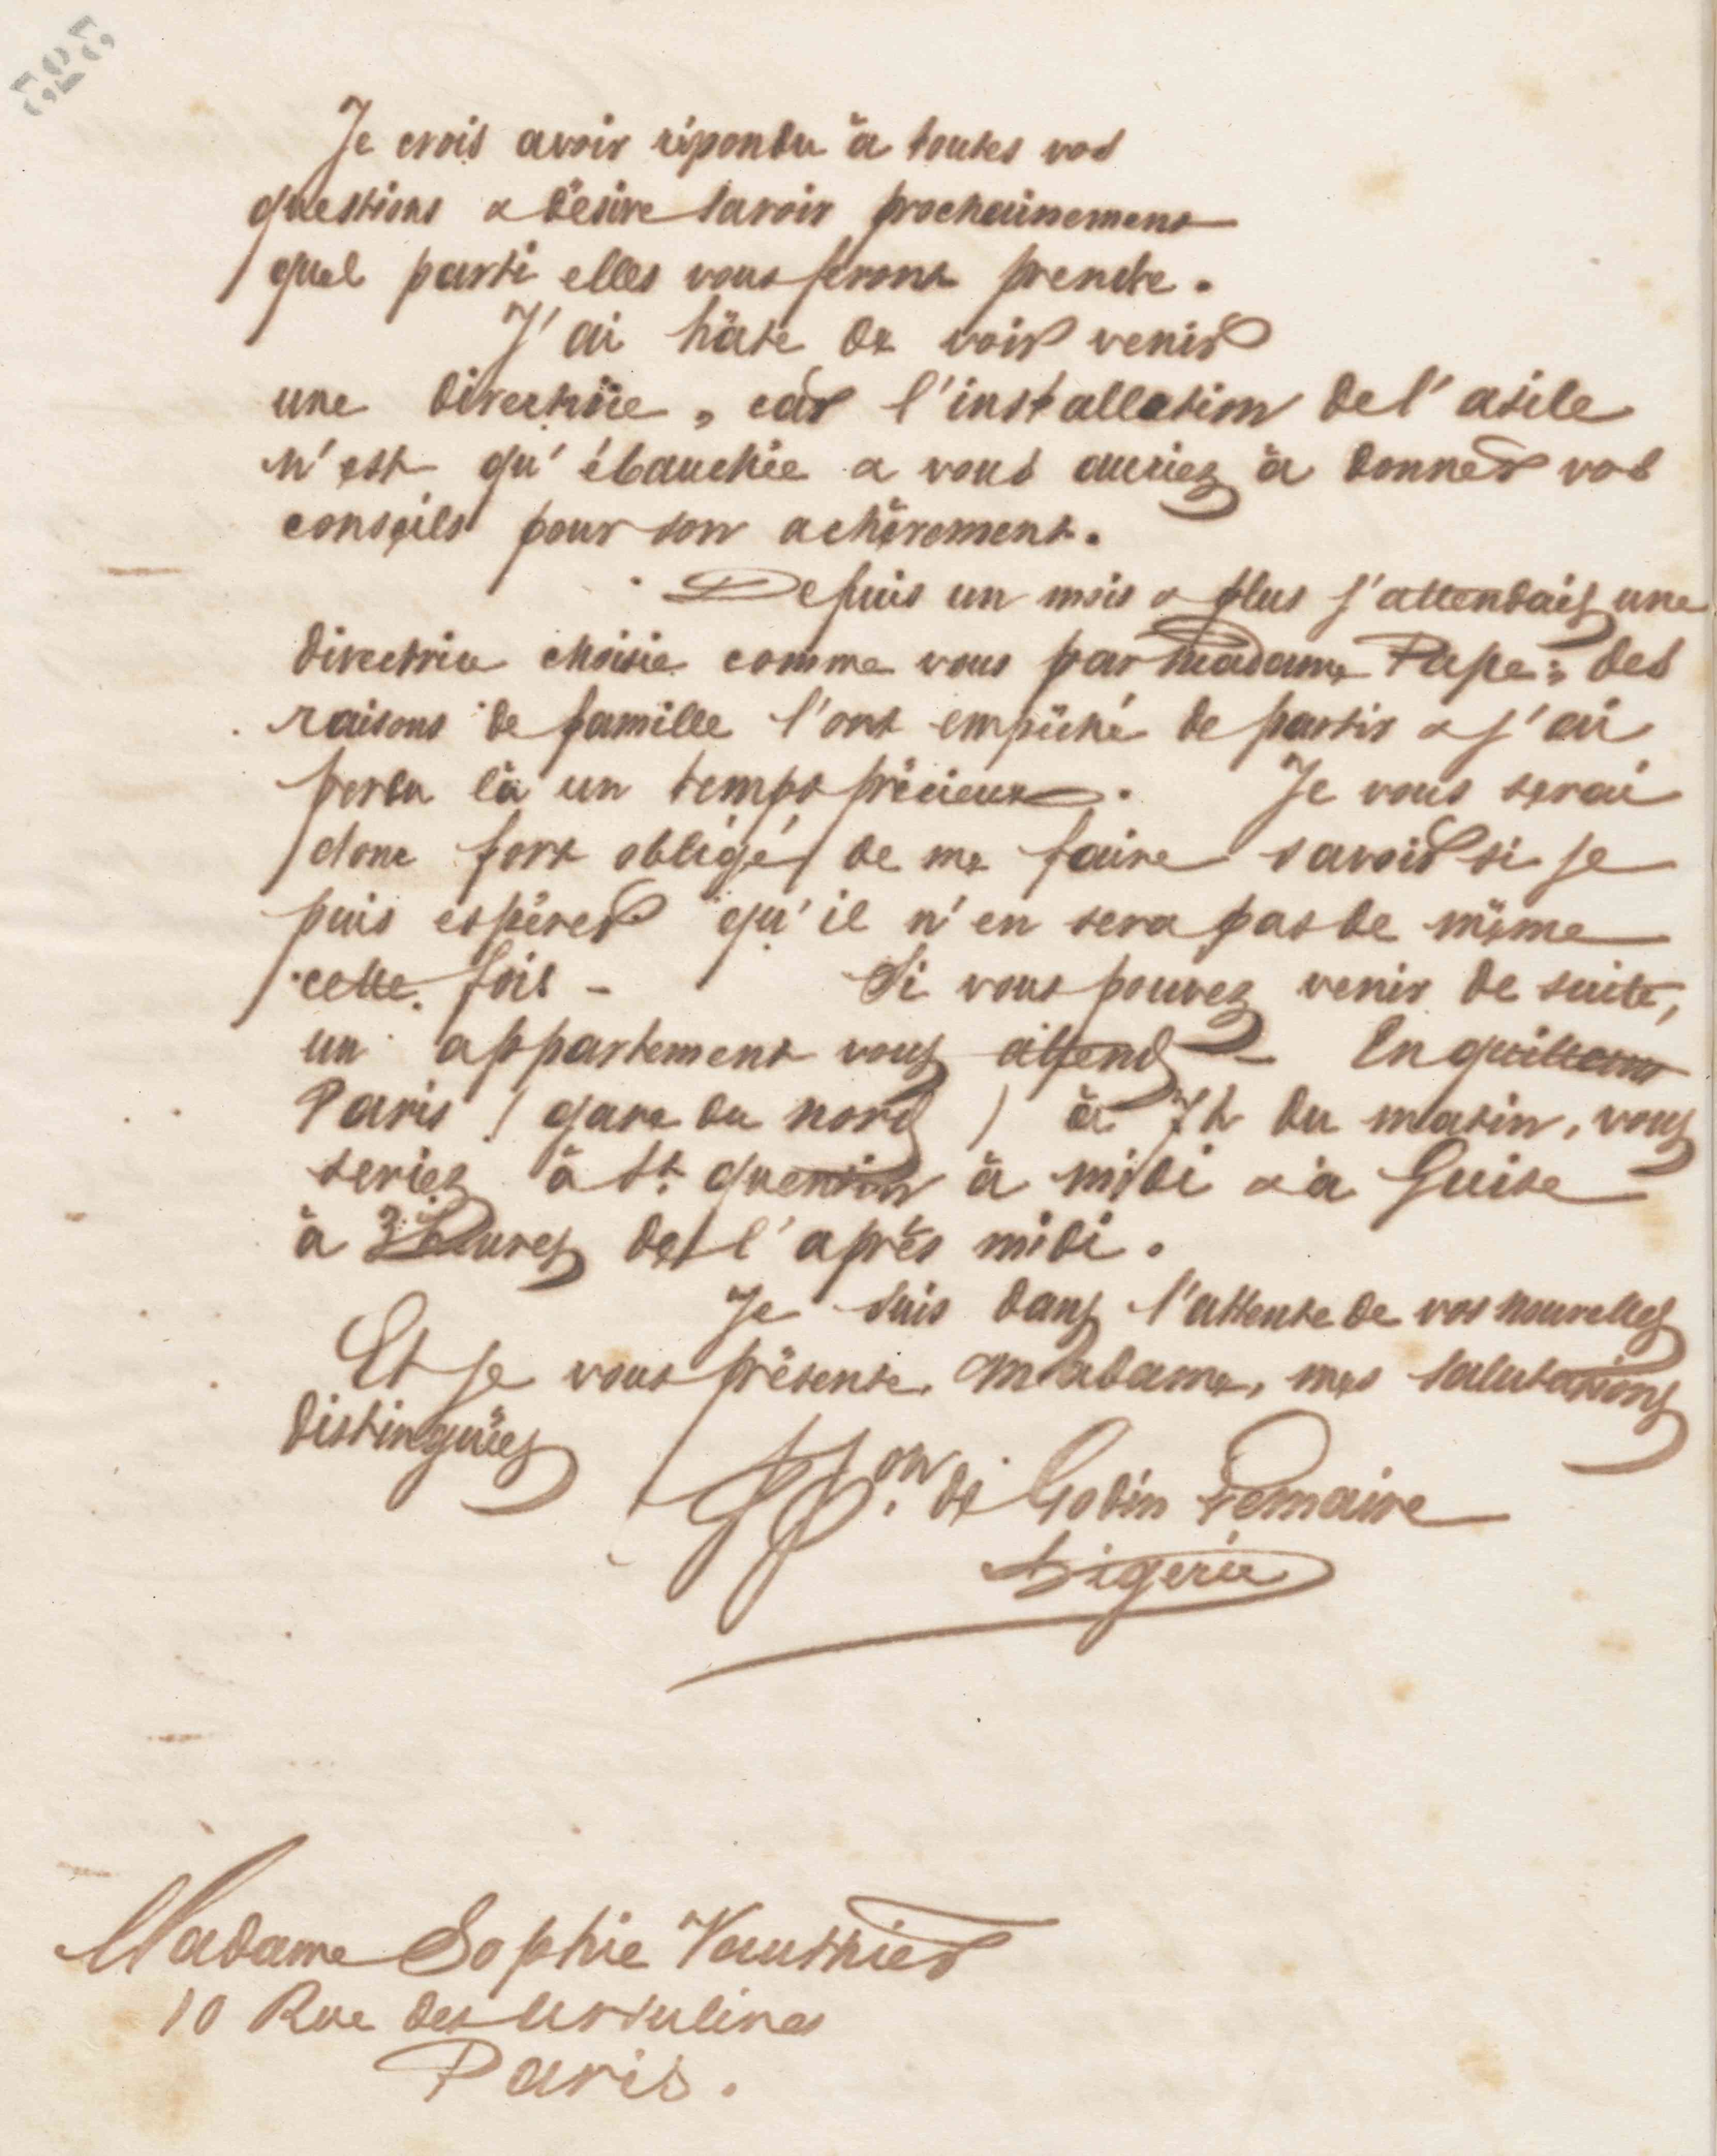 Je crois avoir répondu à toutes vos
questions & désire savoir prochainement
quel parti elles vous feront prendre.
J'ai hâte de voir venir
une directrice, car l'installation de l'asile
n'est qu'ébauchée & vous auriez à donner vos
conseils pour son achèvement.
Depuis un mois & plus j'attendais une
directrice choisie comme vous par Madame Pape; des
raisons de famille l'ont empêché de partir & j'ai
perdu là un temps précieux. Je vous serai
donc fort obligé de me faire savoir si je
puis espérer qu'il n'en sera pas de même
cette fois - Si vous pouvez venir de suite,
un appartement vous attend - En quittant
Paris (gare du nord) à 7h du matin, vous
seriez à St. quentin à midi & à Guise
à 3 heures de l'après midi.
Je suis dans l'attente de vos nouvelles
Et je vous présente, Madame, mes salutations
distinguées
Pon. de Godin Lemaire
Madame Sophie Vauthier
10 Rue des Ursulines
Paris.